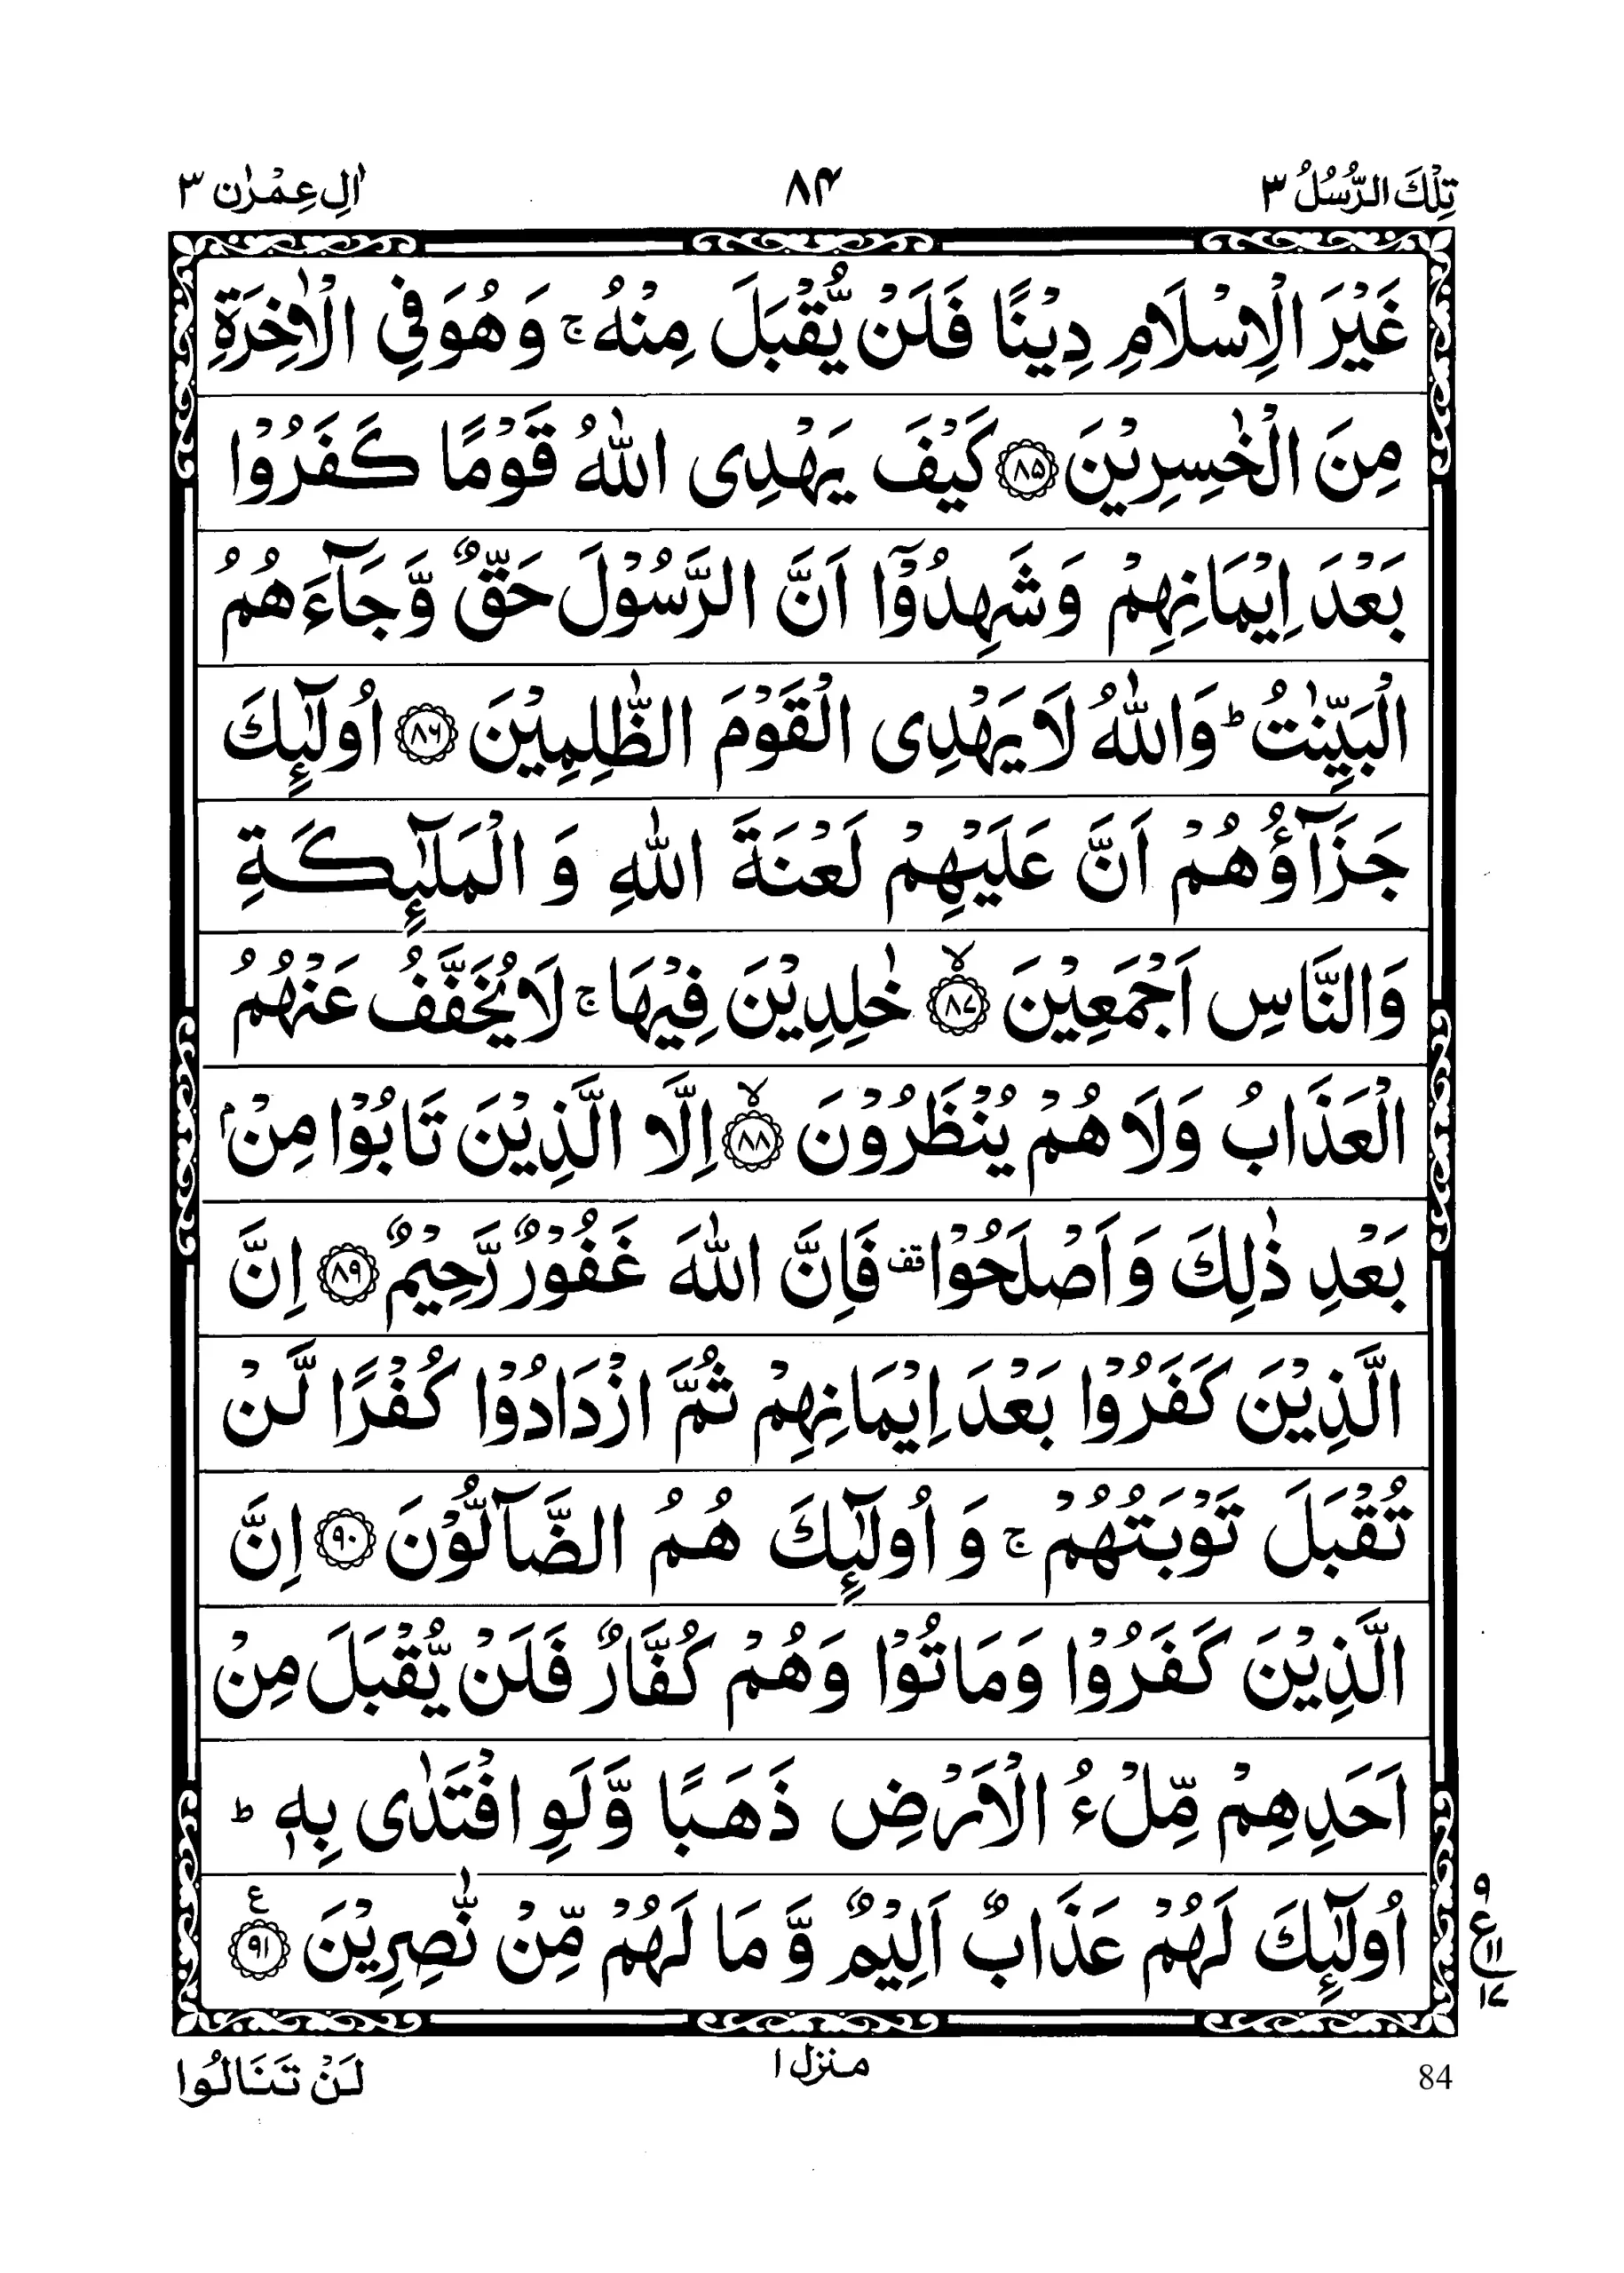 تِلْكَ الرُّسُلُ ٣
٨٤
اٰلِ عِمْرٰن ٣
غَيْرَ الْاِسْلَامِ دِيْنًا فَلَنْ يُّقْبَلَ مِنْهُ ۚ وَهُوَ فِي الْاٰخِرَةِ
مِنَ الْخٰسِرِيْنَ ۝٨٥ كَيْفَ يَهْدِى اللّٰهُ قَوْمًا كَفَرُوْا
بَعْدَ اِيْمَانِهِمْ وَشَهِدُوْٓا اَنَّ الرَّسُوْلَ حَقٌّ وَّجَآءَهُمُ
الْبَيِّنٰتُ ؕ وَاللّٰهُ لَا يَهْدِى الْقَوْمَ الظّٰلِمِيْنَ ۝٨٦ اُولٰٓئِكَ
جَزَآؤُهُمْ اَنَّ عَلَيْهِمْ لَعْنَةَ اللّٰهِ وَ الْمَلٰٓئِكَةِ
وَالنَّاسِ اَجْمَعِيْنَ ۙ۝٨٧ خٰلِدِيْنَ فِيْهَا ۚ لَا يُخَفَّفُ عَنْهُمُ
الْعَذَابُ وَلَا هُمْ يُنْظَرُوْنَ ۙ۝٨٨ اِلَّا الَّذِيْنَ تَابُوْا مِنْۢ
بَعْدِ ذٰلِكَ وَاَصْلَحُوْا قف فَاِنَّ اللّٰهَ غَفُوْرٌ رَّحِيْمٌ ۝٨٩ اِنَّ
الَّذِيْنَ كَفَرُوْا بَعْدَ اِيْمَانِهِمْ ثُمَّ ازْدَادُوْا كُفْرًا لَّنْ
تُقْبَلَ تَوْبَتُهُمْ ۚ وَ اُولٰٓئِكَ هُمُ الضَّآلُّوْنَ ۝٩٠ اِنَّ
الَّذِيْنَ كَفَرُوْا وَمَاتُوْا وَهُمْ كُفَّارٌ فَلَنْ يُّقْبَلَ مِنْ
اَحَدِهِمْ مِّلْءُ الْاَرْضِ ذَهَبًا وَّلَوِ افْتَدٰى بِهٖ ؕ
اُولٰٓئِكَ لَهُمْ عَذَابٌ اَلِيْمٌ وَّ مَا لَهُمْ مِّنْ نّٰصِرِيْنَ ۝٩١ ع
٩
ع
١١
١٧
لَنْ تَنَالُوا
منزل ١
84